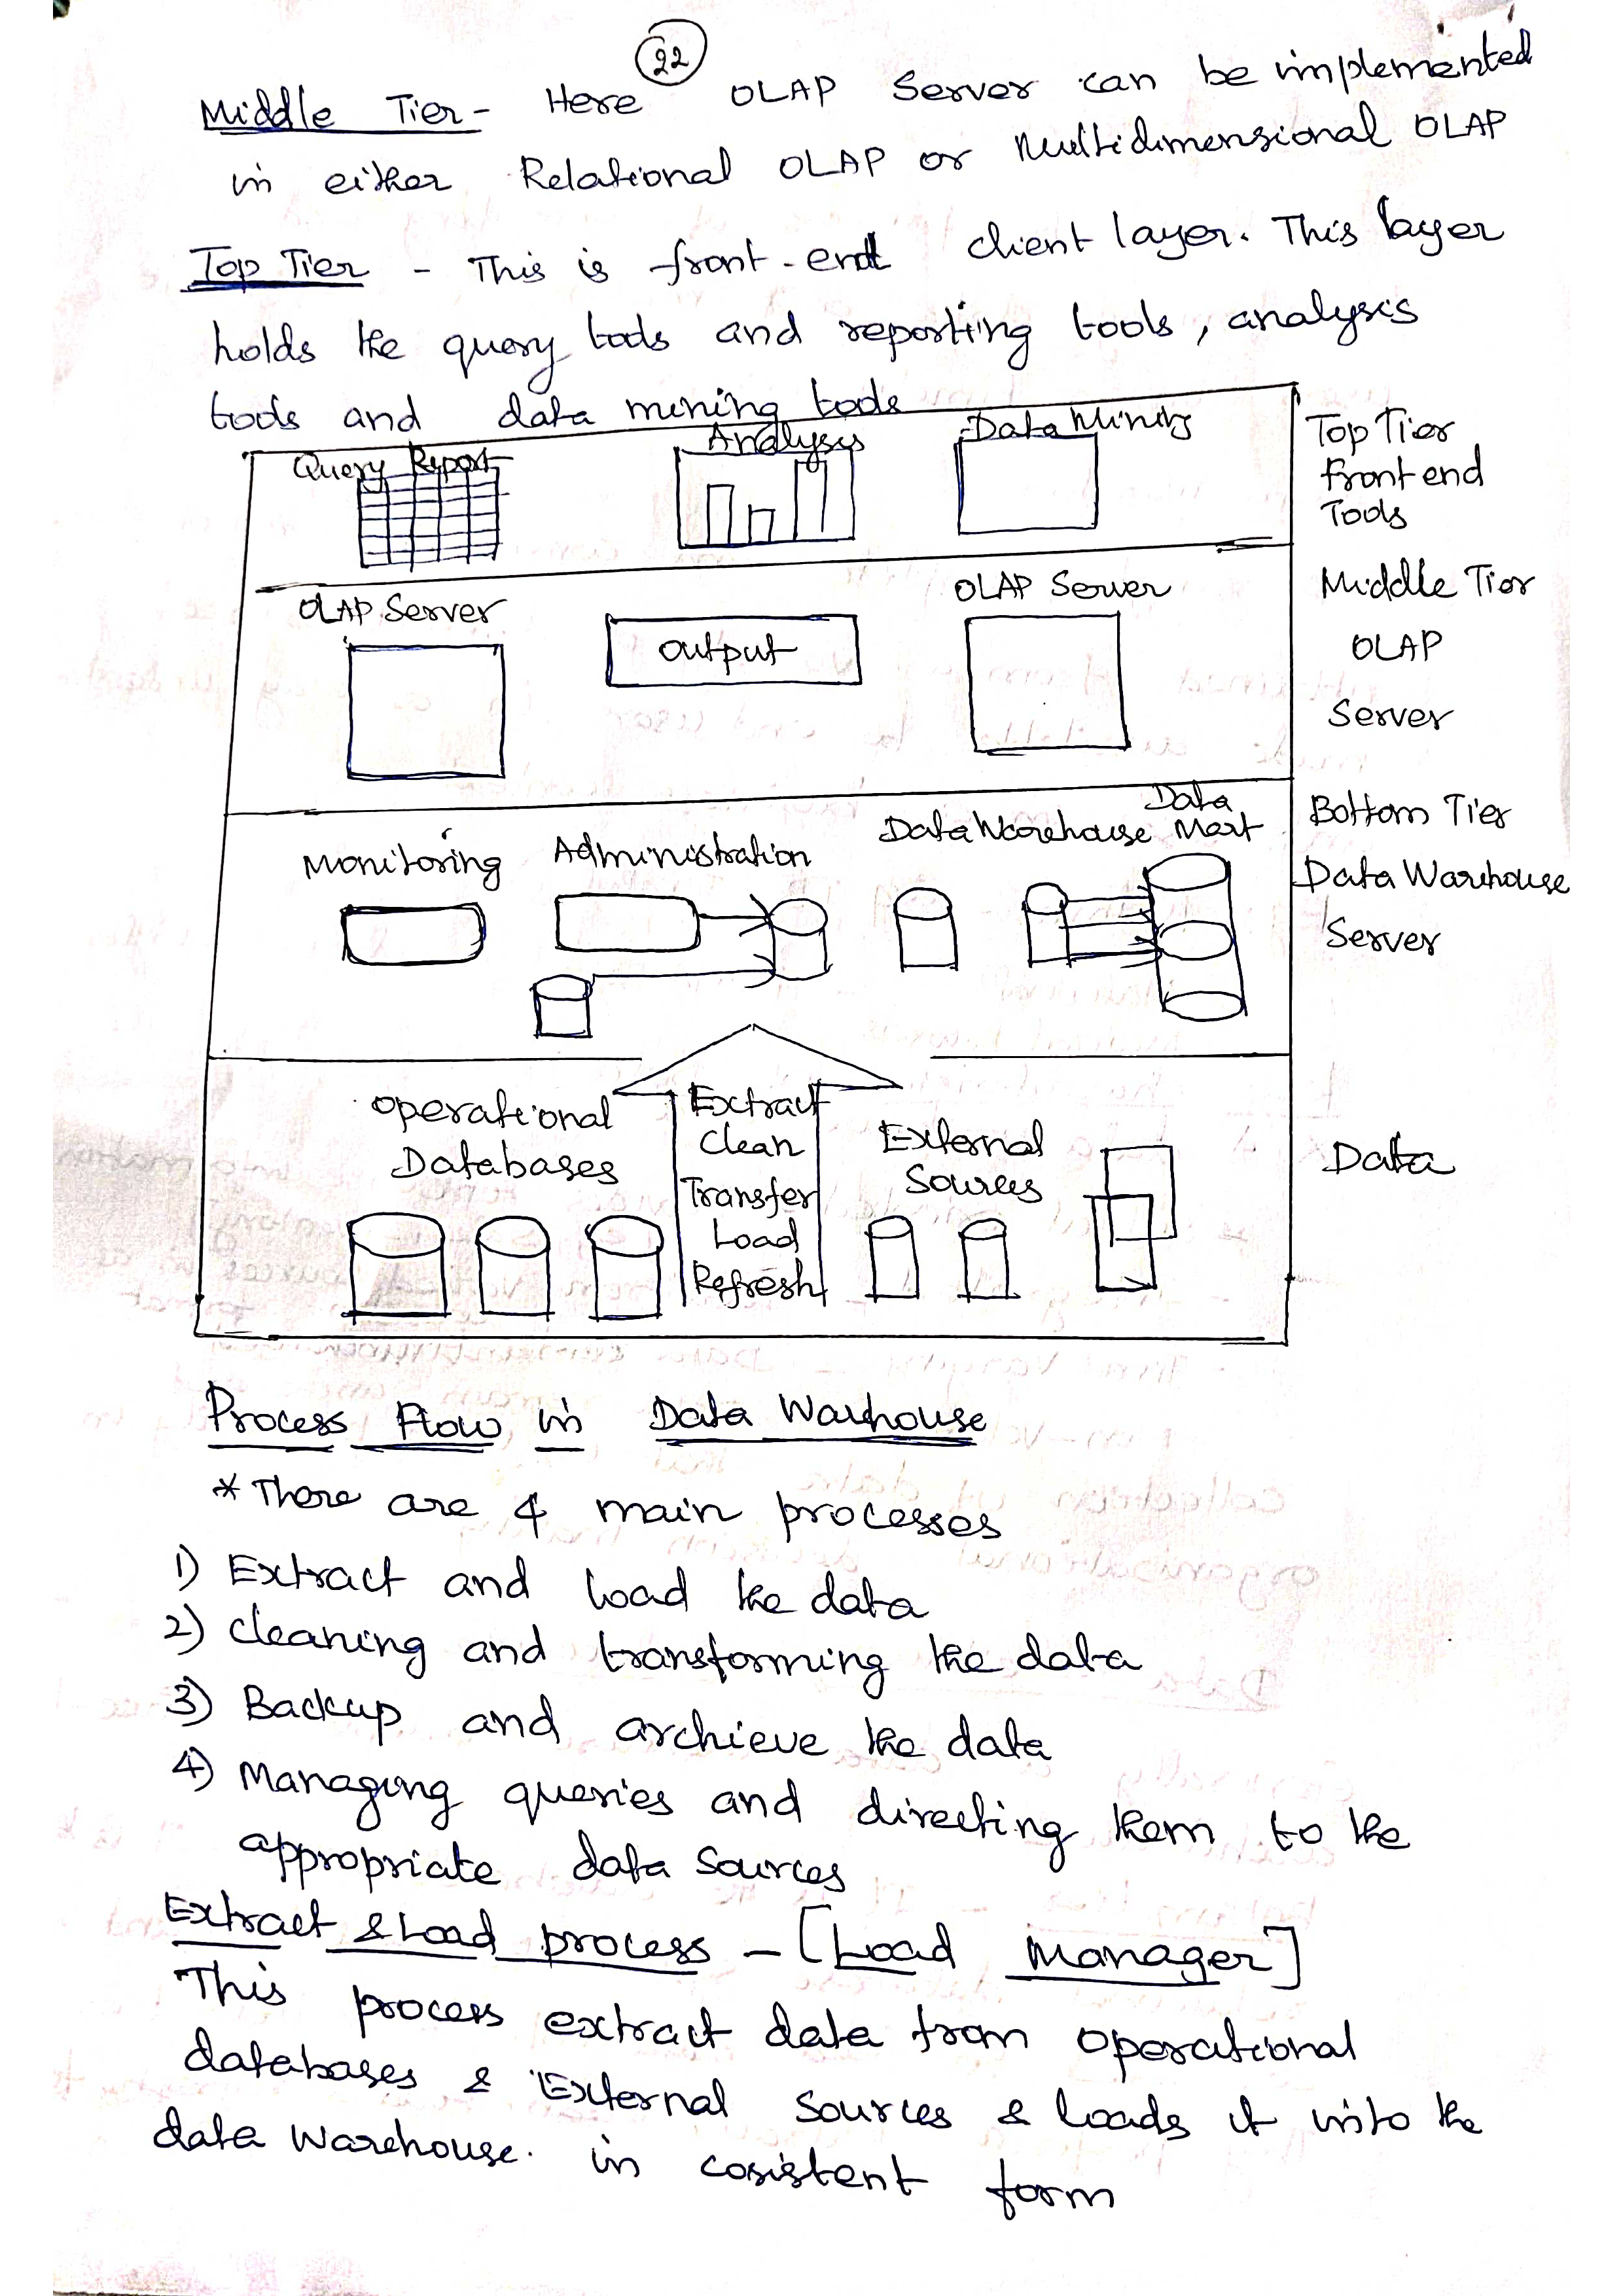 22
Middle Tier - Here OLAP Server can be implemented
in either Relational OLAP or Multidimensional OLAP
Top Tier - This is front-end client layer. This layer
holds the query tools and reporting tools, analysis
tools and data mining tools
Query Report Analysis Data Mining
Top Tier
Front end
Tools
OLAP Server Output OLAP Server
Middle Tier
OLAP
Server
Monitoring Administration Data Warehouse Data Mart
Bottom Tier
Data Warehouse
Server
Operational
Databases
Extract
Clean
Transfer
Load
Refresh
External
Sources
Data
Process Flow in Data Warehouse
* There are 4 main processes
1) Extract and load the data
2) Cleaning and transforming the data
3) Backup and archieve the data
4) Managing queries and directing them to the
appropriate data sources
Extract & Load process - [Load Manager]
This process extract data from operational
databases & External Sources & loads it into the
data warehouse. in cosistent form